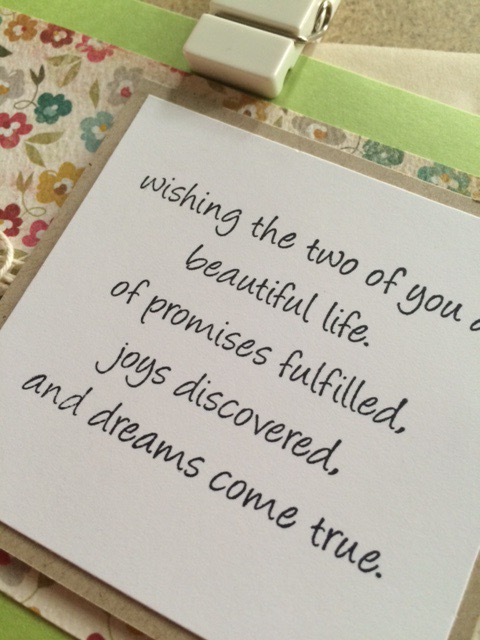 wishing the two of you a
beautiful life.
of promises fulfilled,
joys discovered,
and dreams come true.